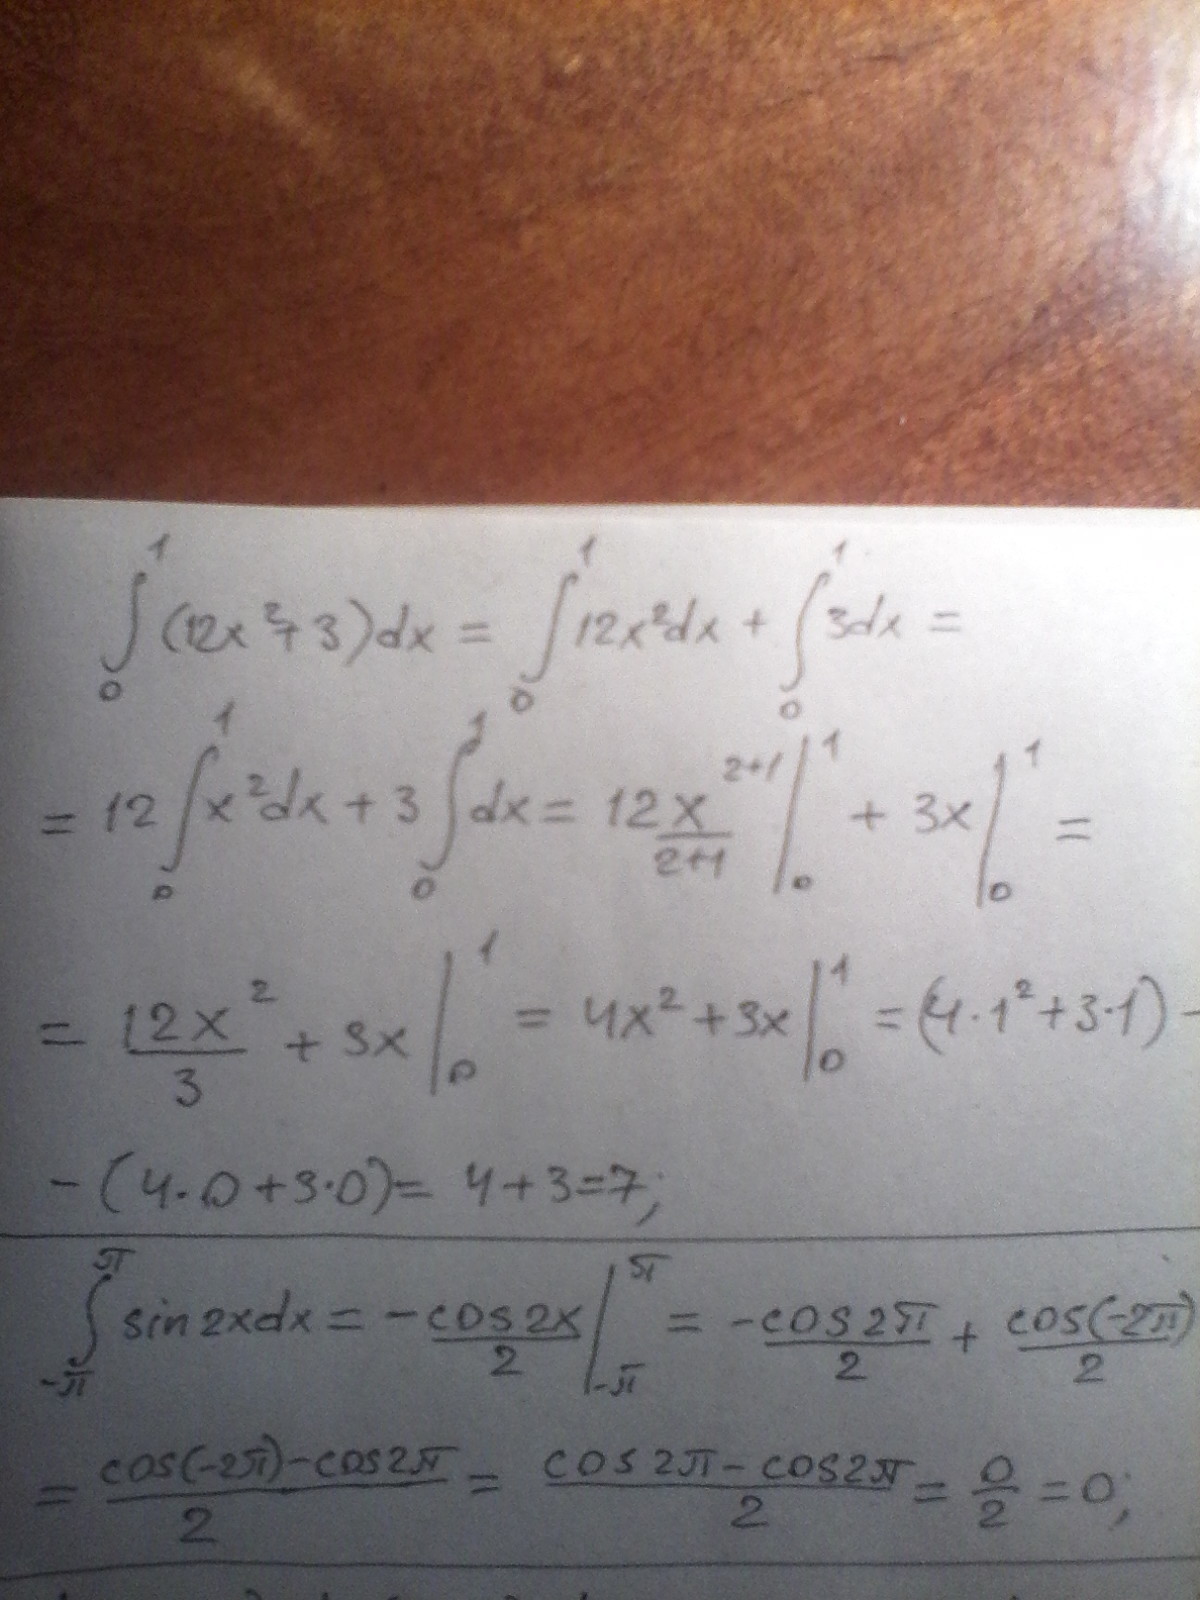 ∫₀¹ (12x²+3)dx = ∫₀¹ 12x²dx + ∫₀¹ 3dx =
= 12 ∫₀¹ x²dx + 3 ∫₀¹ dx = 12 x²⁺¹/(2+1) |₀¹ + 3x |₀¹ =
= 12x²/3 + 3x |₀¹ = 4x² + 3x |₀¹ = (4·1² + 3·1) -
- (4·0 + 3·0) = 4 + 3 = 7;
∫ from -π to π sin2xdx = - cos2x/2 | from -π to π = - cos2π/2 + cos(-2π)/2
= (cos(-2π) - cos2π)/2 = (cos2π - cos2π)/2 = 0/2 = 0;